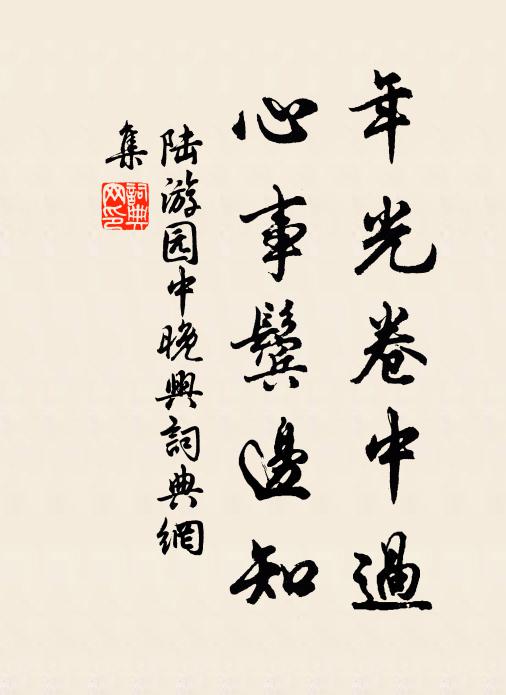 年光卷中過
心事鬢邊知
陆游园中晚興詞典網
集
詞典網印